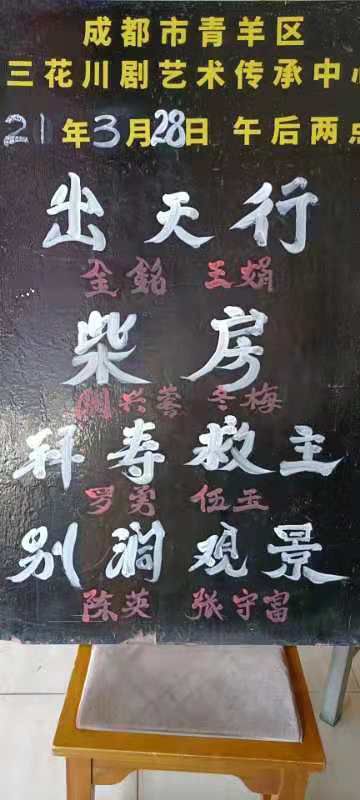 成都市青羊区
三花川剧艺术传承中心
21年3月28日 午后两点
出天行
金銘 王娟
柴房
兴蓉 冬梅
拜寿救主
罗勇 伍玉
别涧观景
陈英 张守富